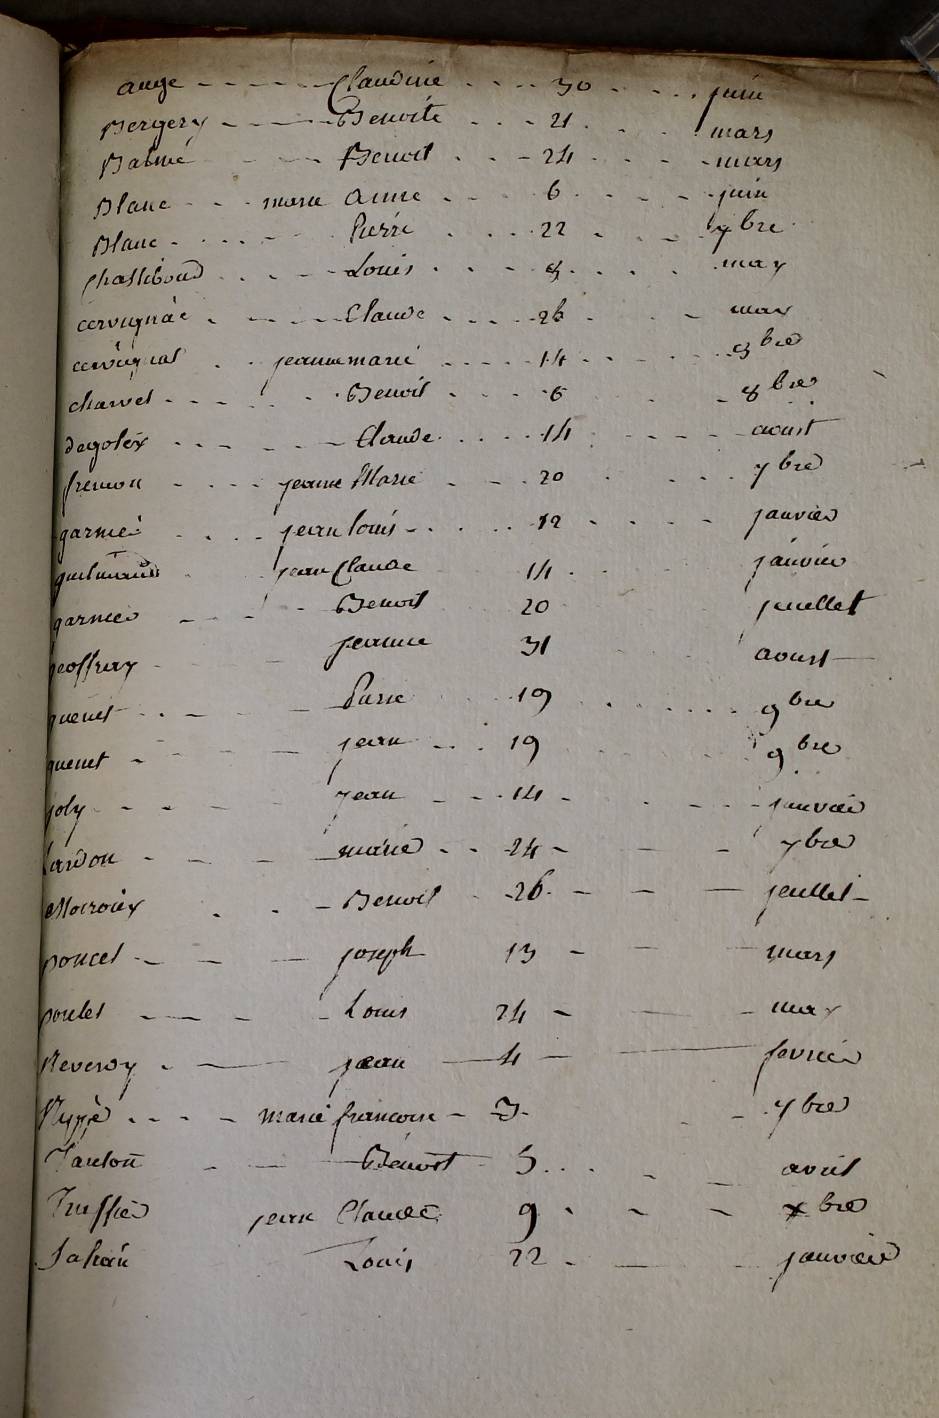 auge Claudine 30 juin
Bergery Benoite 21 mars
Balme Benoit 24 mars
Blanc marie anne 6 juin
Blanc Pierre 22 7bre
Chassiboud Louis 8 may
cervignac Claude 26 may
jeannemarie 14 9bre
charvet Benoit 6 8bre
degoleix Claude 14 aoust
fremon jeanne Marie 20 7bre
garnier jean louis 12 janvier
jean Claude 14 janvier
garnier Benoit 20 juillet
geoffray jeanne 31 aoust
guenet 19 9bre
guenet jean 19 9bre
joly jean 14 janvier
lardon marie 24 7bre
Benoit 26 juillet
poncet joseph 13 mars
Louis 24 may
Reveroy jean 4 fevrier
marie francoise 3 7bre
Benoit 5 avril
Truffier jean Claude 9 xbre
Louis 22 janvier